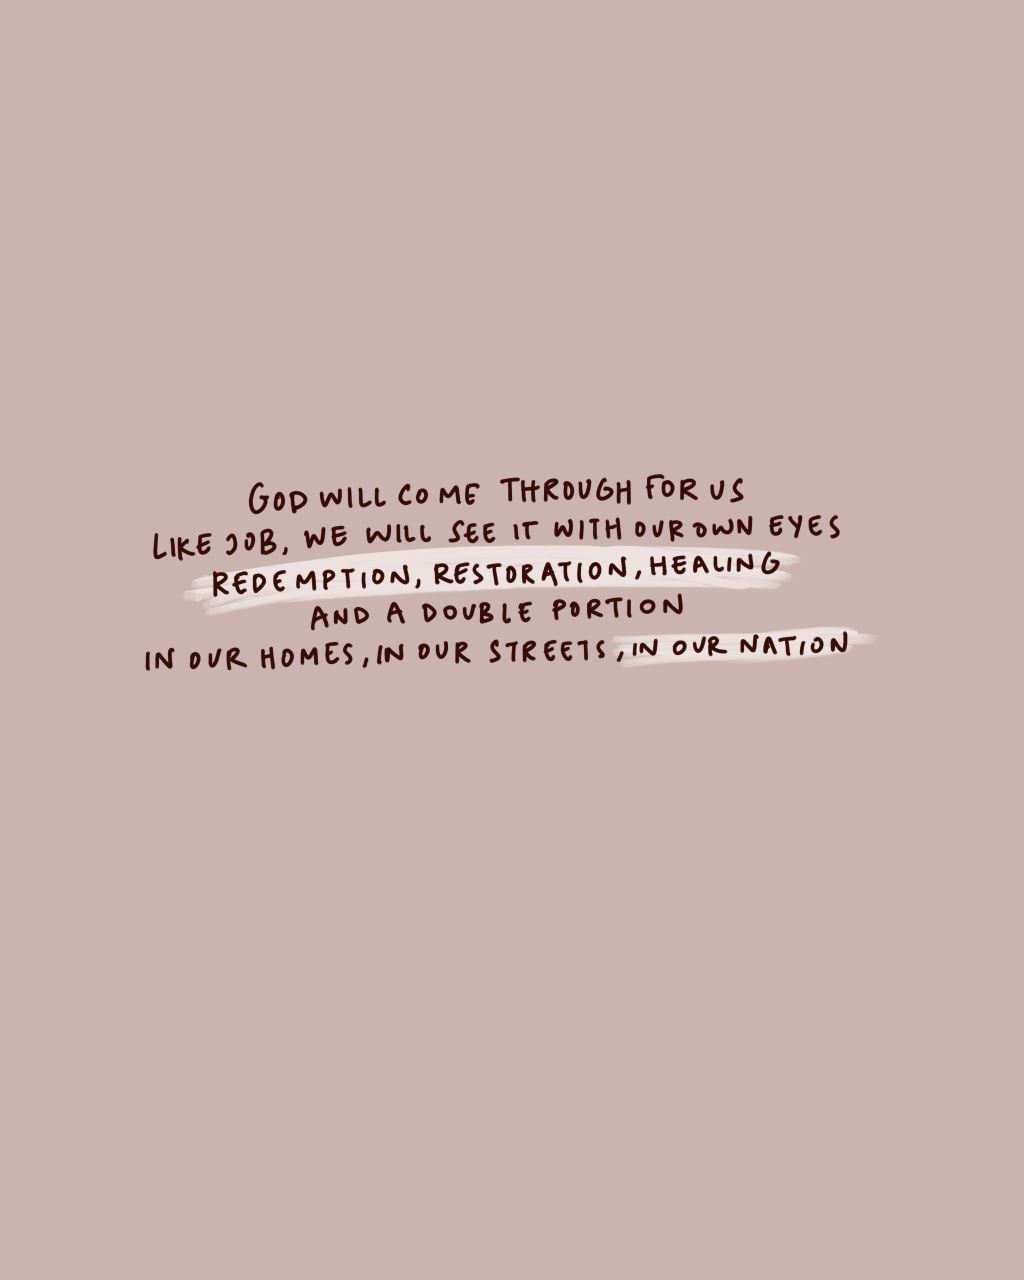 GOD WILL COME THROUGH FOR US
LIKE JOB, WE WILL SEE IT WITH OUR OWN EYES
REDEMPTION, RESTORATION, HEALING
AND A DOUBLE PORTION
IN OUR HOMES, IN OUR STREETS, IN OUR NATION